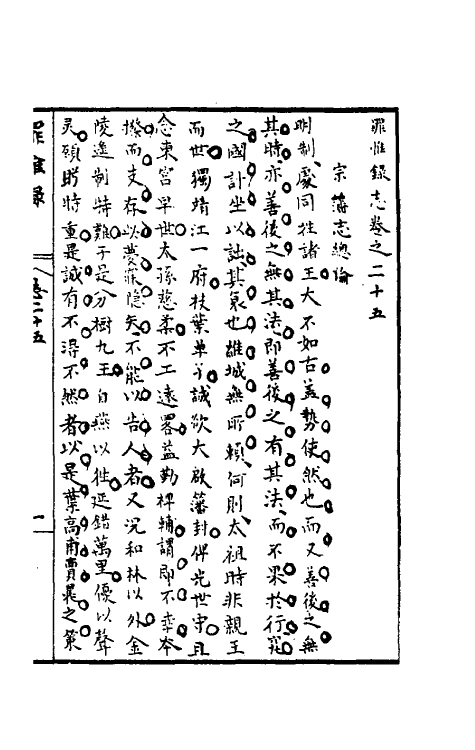 罪惟錄志卷之二十五
宗藩志總論
明制處同姓諸王大不如古蓋勢使然也而又善後之無
其時亦善後之無其法即善後之有其法而不果於行究
之國計坐以詘其衰也雄城無所賴何則太祖時非親王
而世獨靖江一府枝葉單子誠欲大啟藩封俾光世守且
念東宮早世太孫慈柔不工遠畧益勤稗輔謂即不幸本
撥而支存以愛寐隱矣不能以告人者又況和林以外金
陵逸制特難于是分樹九王自燕以徃延錯萬里優以聲
灵頤盻特重是誠有不得不然者以是葉高甫賈晁之策
罪惟錄
卷二十五
一